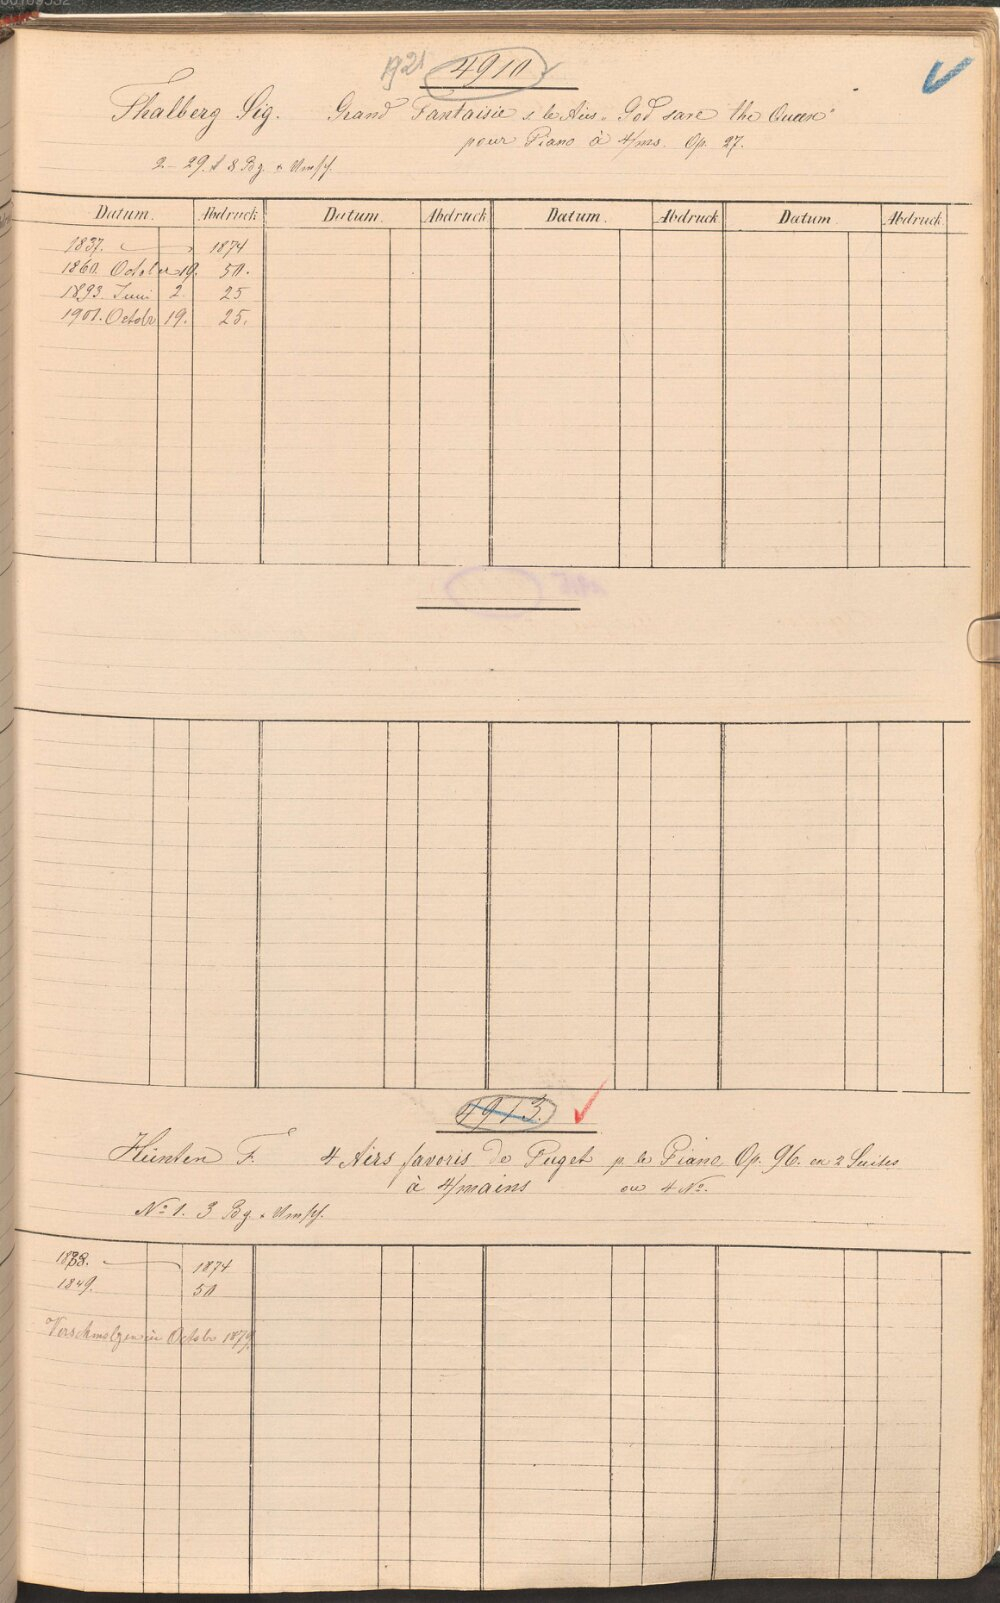 1921 4910
Thalberg Sig. Grand Fantaisie s. le Airs „God save the Queen"
pour Piano à 4/ms. Op. 27.
2-29. A 8 Bg. + Umschl.
Datum. Abdruck Datum. Abdruck Datum. Abdruck Datum. Abdruck.
1837. 1874
1860. October 19. 50.
1893. Juni 2. 25
1901. Octobr 19. 25.
4913.
Hünten F. 4 Airs favoris de Puget p. le Piano Op. 96. en 2 Suites
à 4/mains ou 4 No.
No 1. 3 Bg. + Umschl.
1838. 1874
1849. 50
Verschmolzen im Octobr 1879.